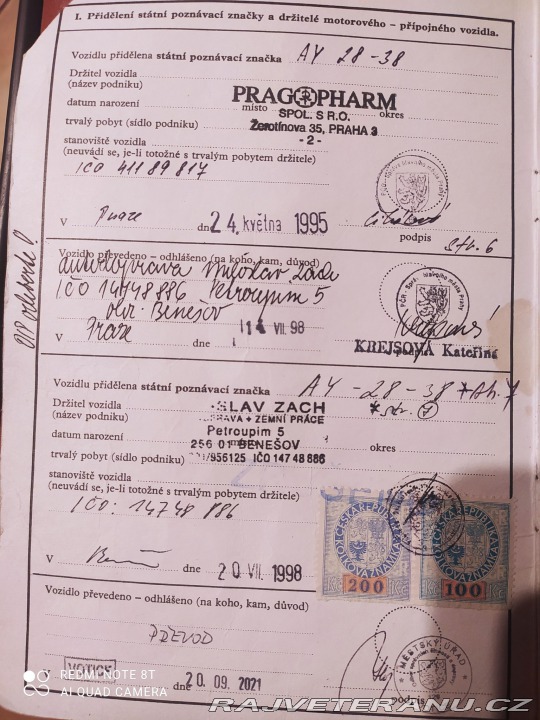 I. Přidělení státní poznávací značky a držitelé motorového – přípojného vozidla.
Vozidlu přidělena státní poznávací značka AY 28-38
Držitel vozidla
(název podniku)
PRAGOPHARM
datum narození místo okres
SPOL. S R.O.
trvalý pobyt (sídlo podniku) Žerotínova 35, PRAHA 3
stanoviště vozidla - 2 -
(neuvádí se, je-li totožné s trvalým pobytem držitele)
IČO 41189817
V Praze dne 24. května 1995
podpis str. 6
Vozidlo převedeno – odhlášeno (na koho, kam, důvod)
IČO 14748886 Petroupim 5
okr. Benešov
V Praze dne 14 VII. 98
podpis
KREJSOVÁ Kateřina
Vozidlu přidělena státní poznávací značka AY - 28 - 38
Držitel vozidla SLAV ZACH
(název podniku) PRAVA + ZEMNÍ PRÁCE
Petroupim 5
datum narození 256 01 BENEŠOV okres
trvalý pobyt (sídlo podniku) /956125 IČO 147 48 886
stanoviště vozidla
(neuvádí se, je-li totožné s trvalým pobytem držitele)
IČO: 14748 886
ČESKÁ REPUBLIKA
KOLKOVÁ ZNÁMKA
200 Kč
ČESKÁ REPUBLIKA
KOLKOVÁ ZNÁMKA
100 Kč
V dne 20 VII. 1998
Vozidlo převedeno – odhlášeno (na koho, kam, důvod)
PŘEVOD
MĚSTSKÝ ÚŘAD
V VOTICE dne 20. 09. 2021
podpis
REDMI NOTE 8T
AI QUAD CAMERA
RAJVETERANU.CZ